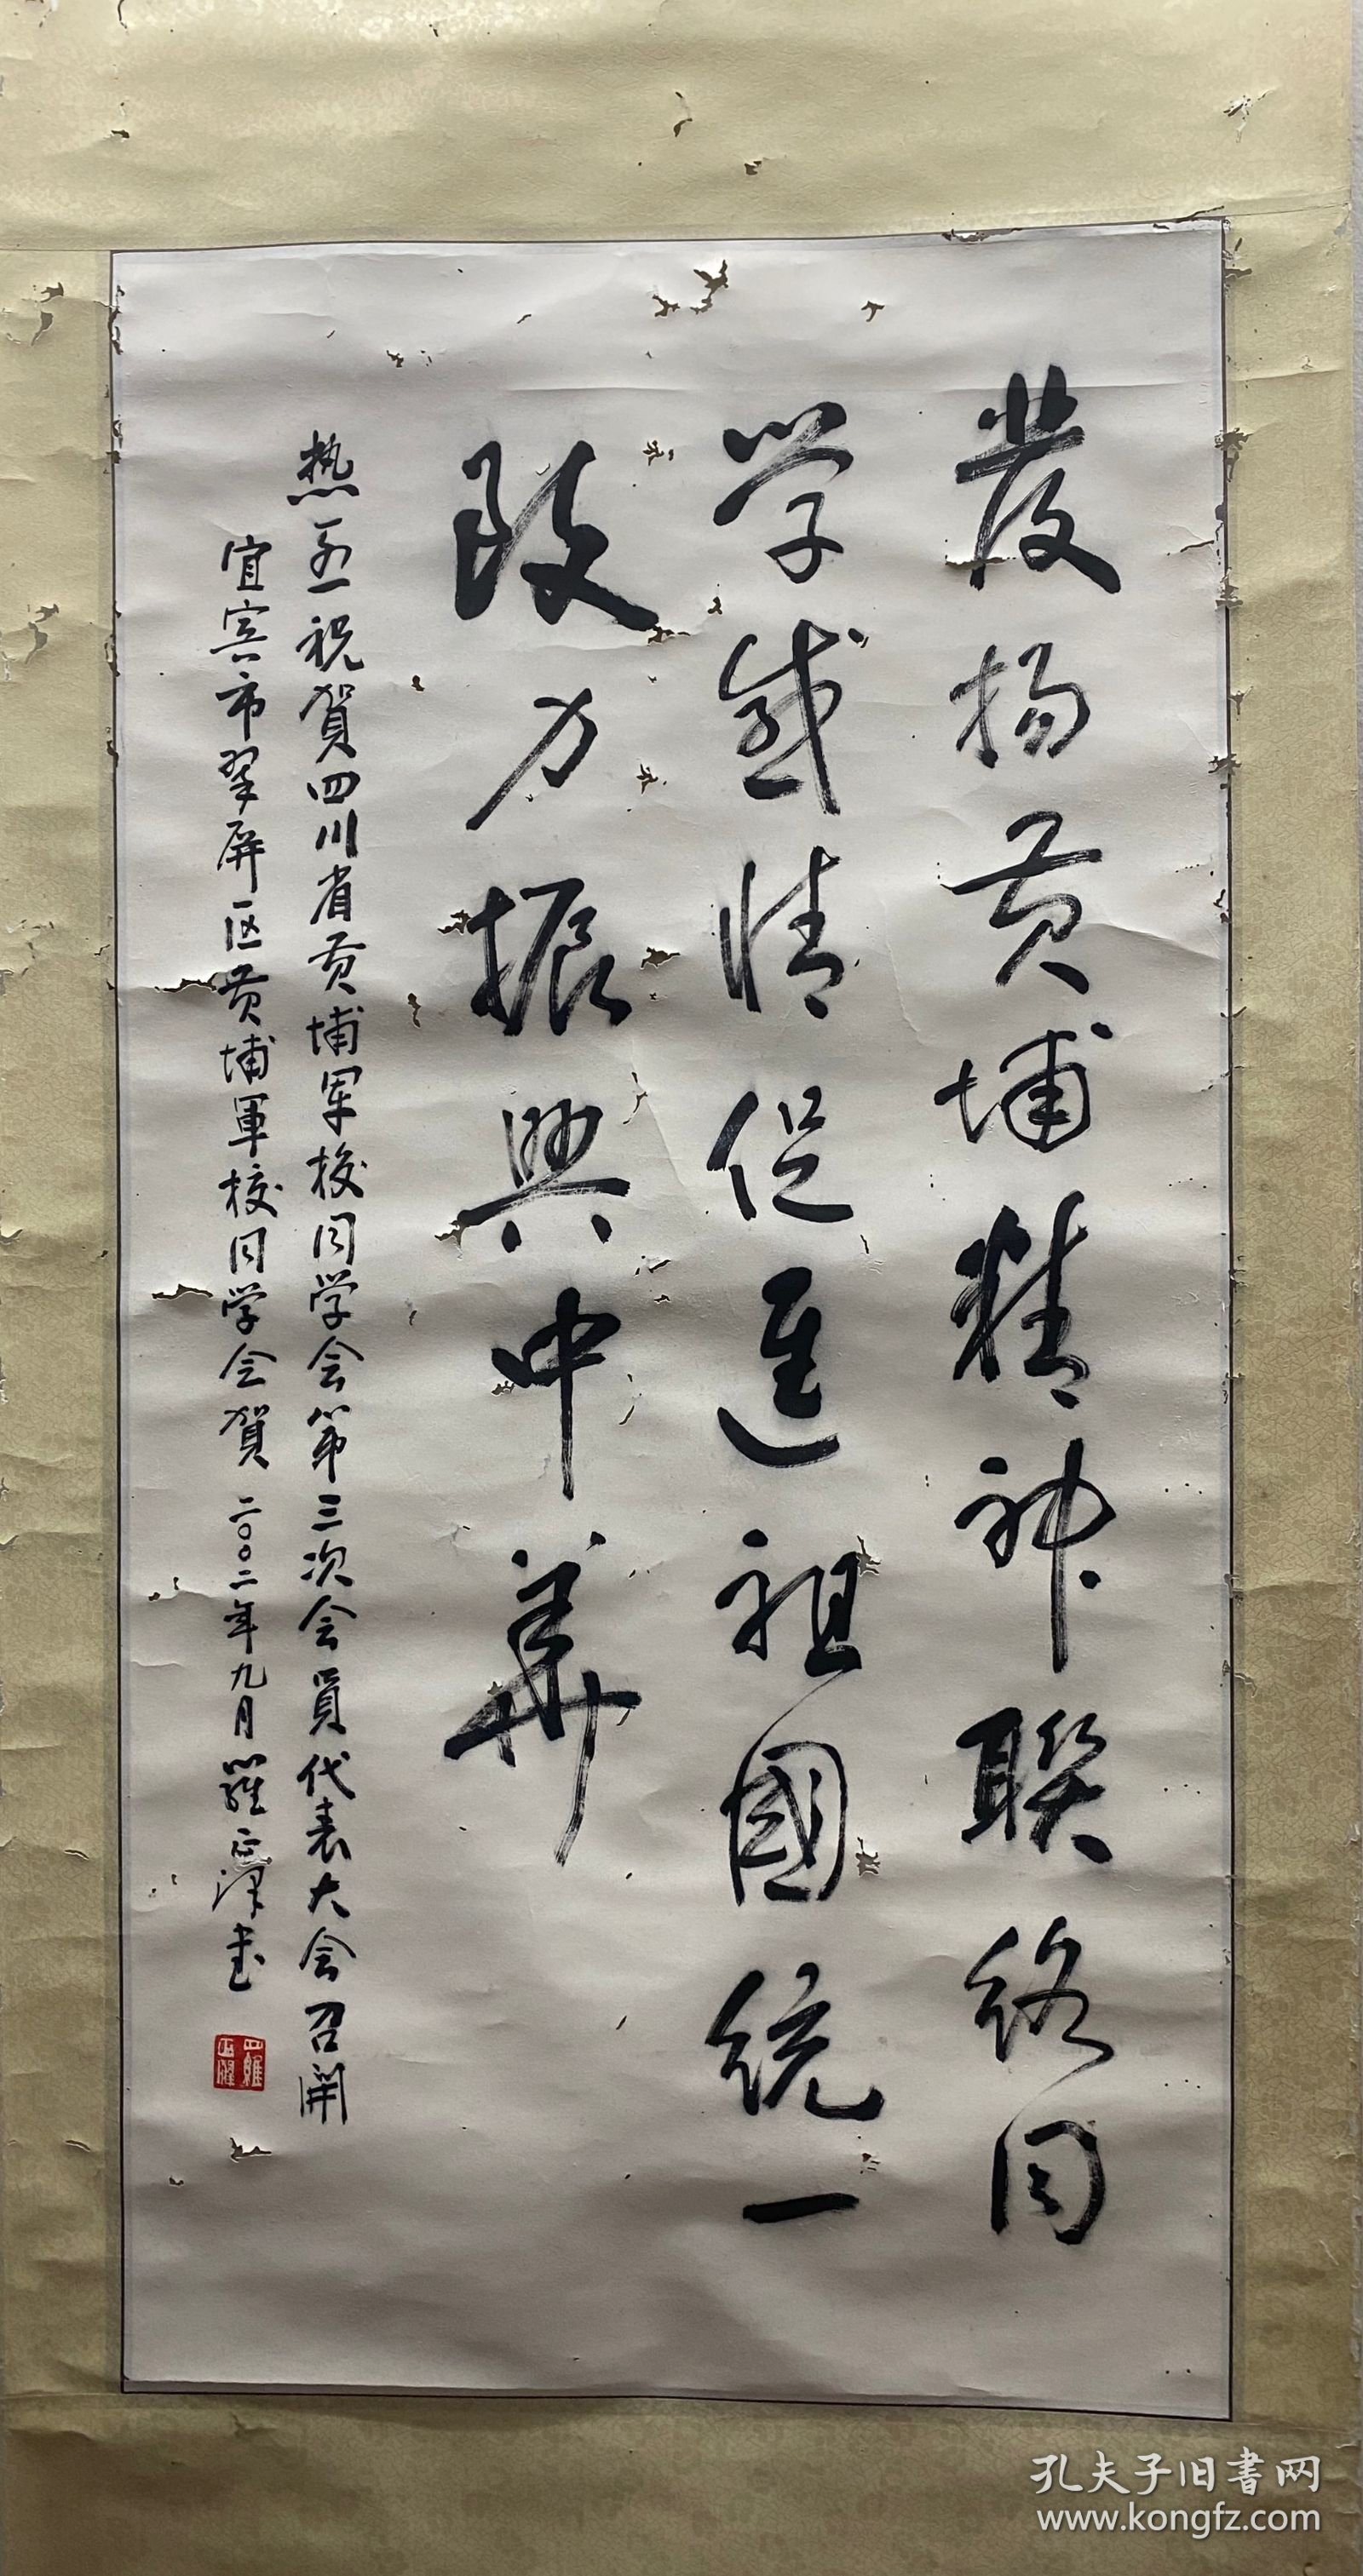 發扬黄埔精神聯络同
学感情促進祖國統一
致力振興中華
热烈祝賀四川省黄埔军校同学会第三次会員代表大会召開
宜宾市翠屏区黄埔軍校同学会賀 二〇〇二年九月 羅正澤书
孔夫子旧書网
www.kongfz.com